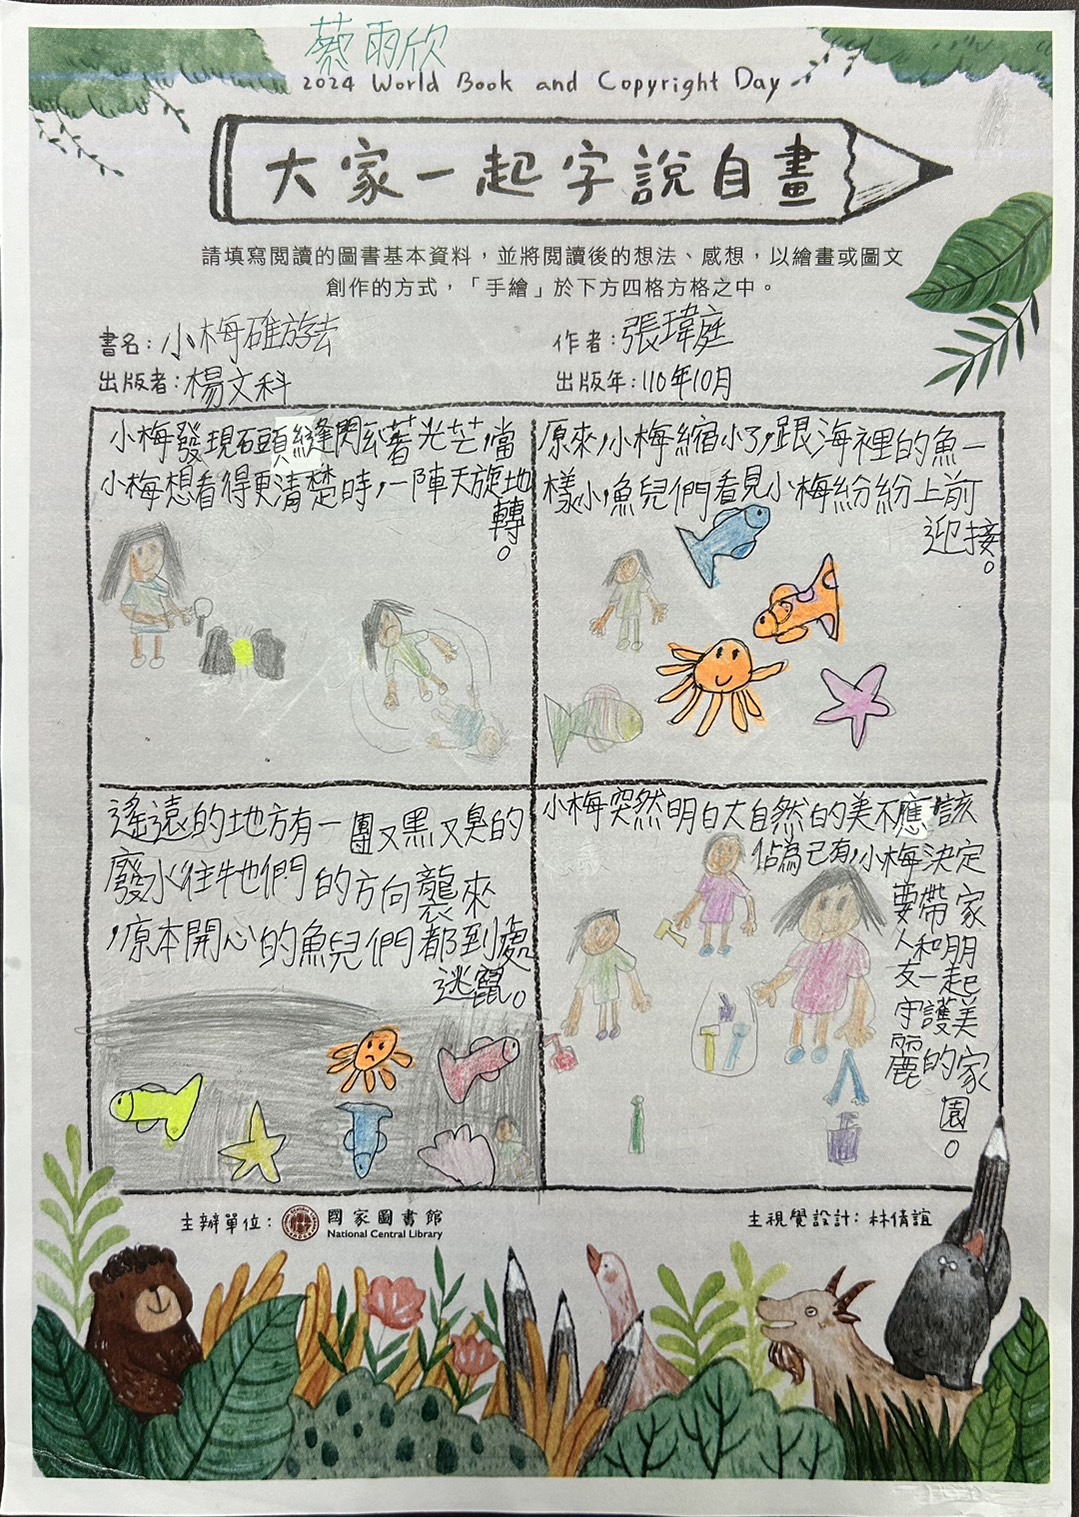 蔡雨欣
2024 World Book and Copyright Day
大家一起字說自畫
請填寫閱讀的圖書基本資料，並將閱讀後的想法、感想，以繪畫或圖文
創作的方式，「手繪」於下方四格方格之中。
書名：小梅碓旅去
作者：張瑋庭
出版者：楊文科
出版年：110年10月
小梅發現石頭縫閃玄著光芒，當
小梅想看得更清楚時，一陣天旋地
轉。
原來，小梅縮小了，跟海裡的魚一
樣小，魚兒們看見小梅紛紛上前
迎接。
遙遠的地方有一團又黑又臭的
廢水往牠們的方向襲來
，原本開心的魚兒們都到處
逃竄。
小梅突然明白大自然的美不應該
佔為己有，小梅決定
要帶家
人和朋
友一起
守護美
麗的家
園。
主辦單位：國家圖書館
National Central Library
主視覺設計：林倩誼